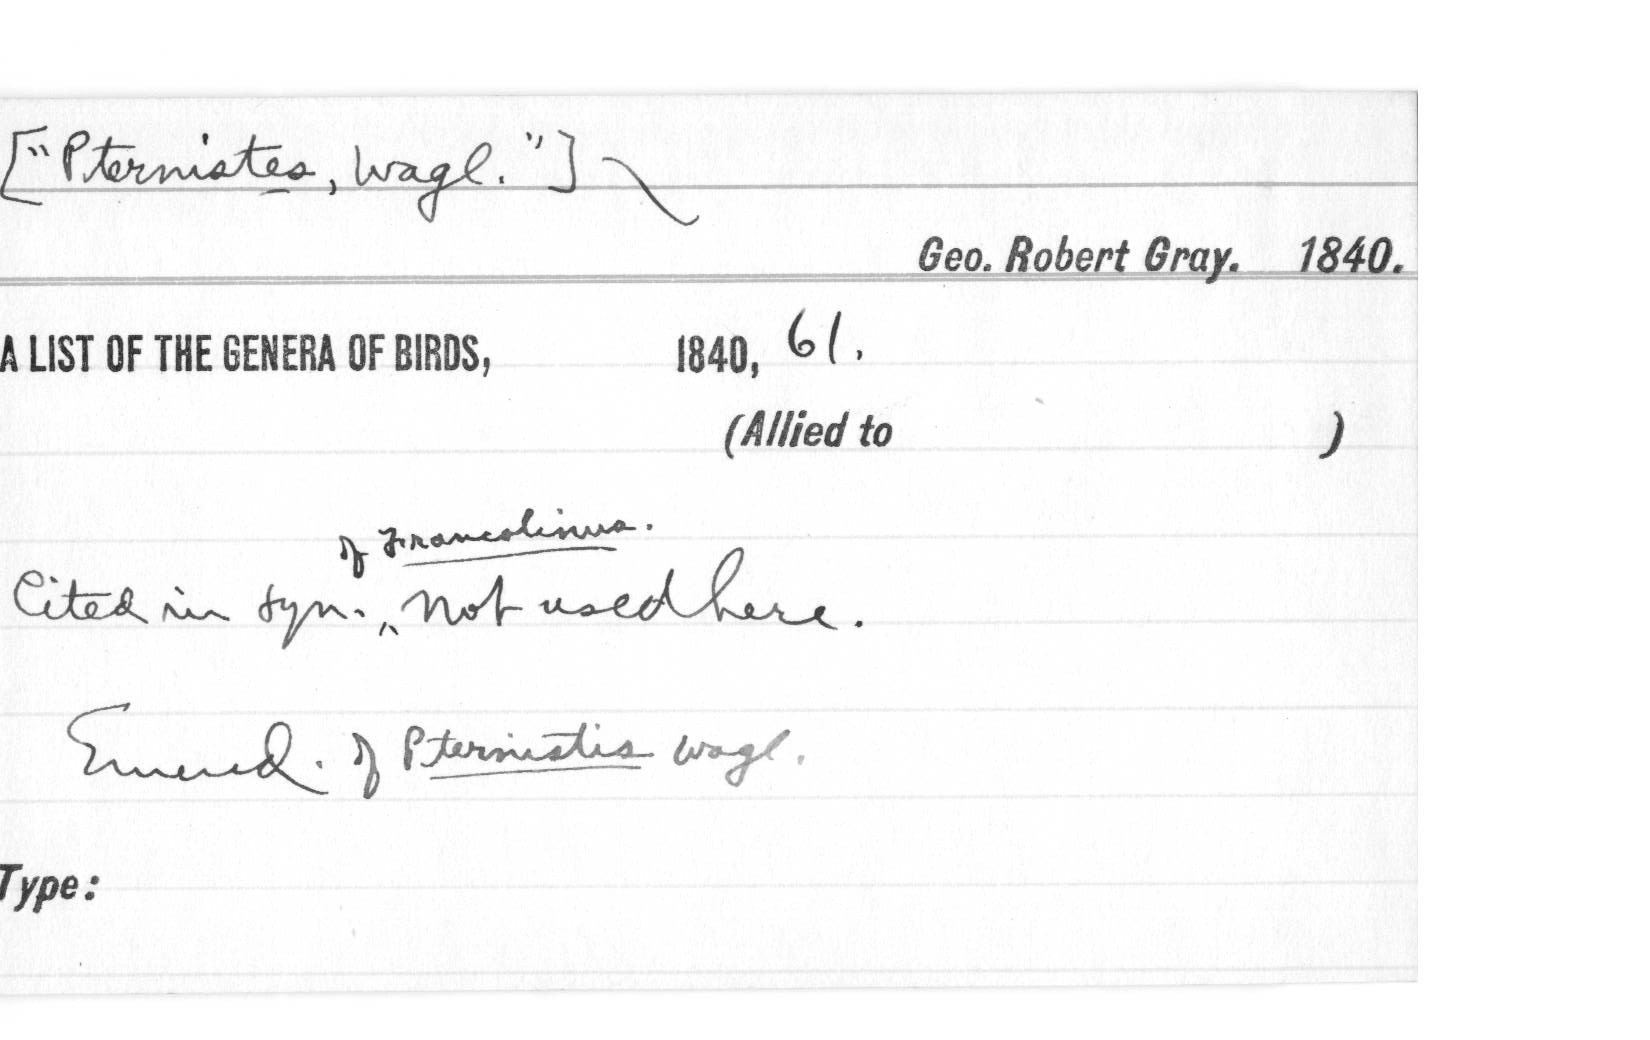 ["Pternistes, Wagl."]
Geo. Robert Gray. 1840.
A LIST OF THE GENERA OF BIRDS, 1840, 61.
(Allied to )
of Francolinus.
Cited in syn. ‸ not used here.
Emend. of Pternistis Wagl.
Type: